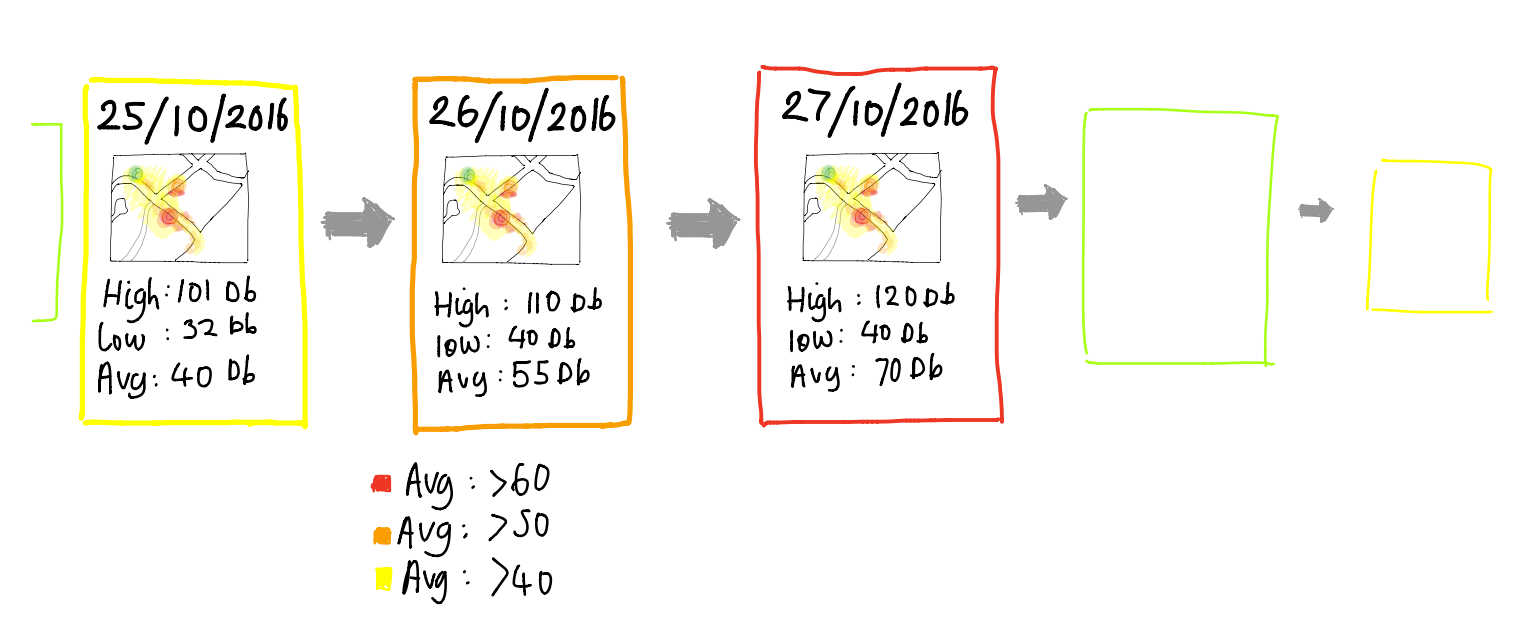 25/10/2016
High: 101 Db
Low : 32 Db
Avg: 40 Db
26/10/2016
High : 110 Db
low: 40 Db
Avg : 55 Db
27/10/2016
High : 120 Db
low: 40 Db
Avg : 70 Db
Avg : >60
Avg : >50
Avg : >40